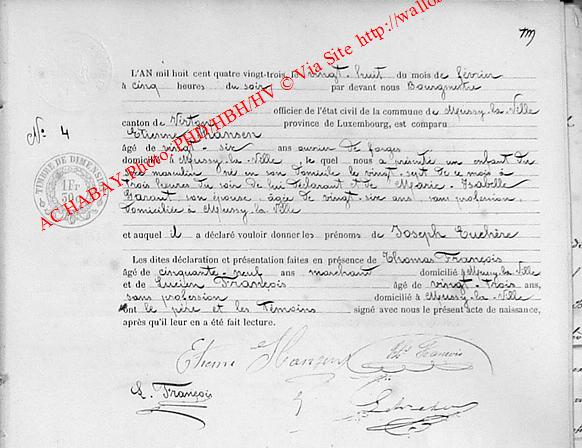 L'AN mil huit cent quatre vingt-trois, le vingt-huit du mois de février
à cinq heures du soir par devant nous Bourgmestre
officier de l'état civil de la commune de Mussy-la-Ville
canton de Virton province de Luxembourg, est comparu
Etienne Hansen
âgé de vingt-six ans ouvrier de forges
domicilié à Mussy-la-Ville, lequel nous a présenté un enfant du
sexe masculin né en son domicile le vingt-sept de ce mois à
trois heures du soir de lui déclarant et de Marie-Isabelle
Garant son épouse, âgée de vingt-six ans, sans profession,
domiciliée à Mussy-la-Ville
et auquel il a déclaré vouloir donner les prénoms de Joseph Euchère
Les dites déclaration et présentation faites en présence de Thomas François
âgé de cinquante-neuf ans marchant domicilié à Mussy-la-Ville
et de Lucien François âgé de vingt-trois ans,
sans profession domicilié à Mussy-la-Ville
ont le père et les témoins signé avec nous le présent acte de naissance,
après qu'il leur en a été fait lecture.
N° 4
TIMBRE DE DIMENSION
1Fr
ACHABAY-Photo PHD/HBH/HV © Via Site http://wallo
Etienne Hansen
Th. François
L. François